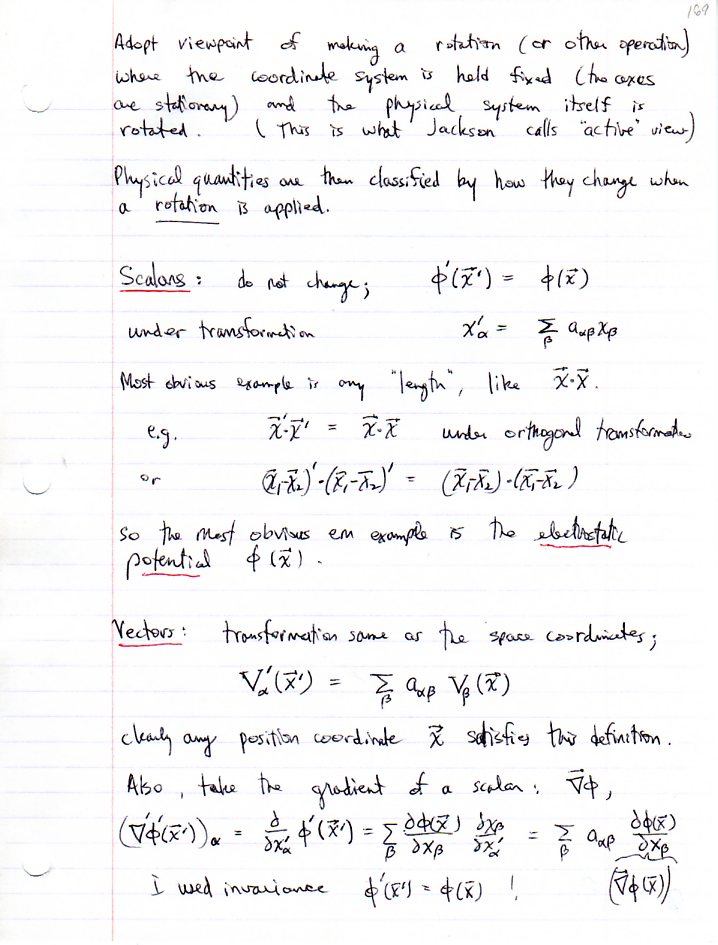 169
Adopt viewpoint of making a rotation (or other operation)
where the coordinate system is held fixed (the axes
are stationary) and the physical system itself is
rotated. (This is what Jackson calls "active" view)
Physical quantities are then classified by how they change when
a rotation is applied.
Scalars: do not change; ϕ'(x⃗') = ϕ(x⃗)
under transformation x'α = Σβ aαβ xβ
Most obvious example is any "length", like x⃗·x⃗.
e.g. x⃗'·x⃗' = x⃗·x⃗ under orthogonal transformation
or (x⃗₁-x⃗₂)'·(x⃗₁-x⃗₂)' = (x⃗₁-x⃗₂)·(x⃗₁-x⃗₂)
so the most obvious em example is the electrostatic
potential ϕ(x⃗).
Vectors: transformation same as the space coordinates;
V'α(x⃗') = Σβ aαβ Vβ(x⃗)
clearly any position coordinate x⃗ satisfies this definition.
Also, take the gradient of a scalar: ∇⃗ϕ,
(∇⃗'ϕ'(x⃗'))α = ∂/∂x'α ϕ'(x⃗') = Σβ ∂ϕ(x⃗)/∂xβ ∂xβ/∂x'α = Σβ aαβ ∂ϕ(x⃗)/∂xβ
I used invariance ϕ'(x⃗') = ϕ(x⃗) ! (∇⃗ϕ(x⃗))